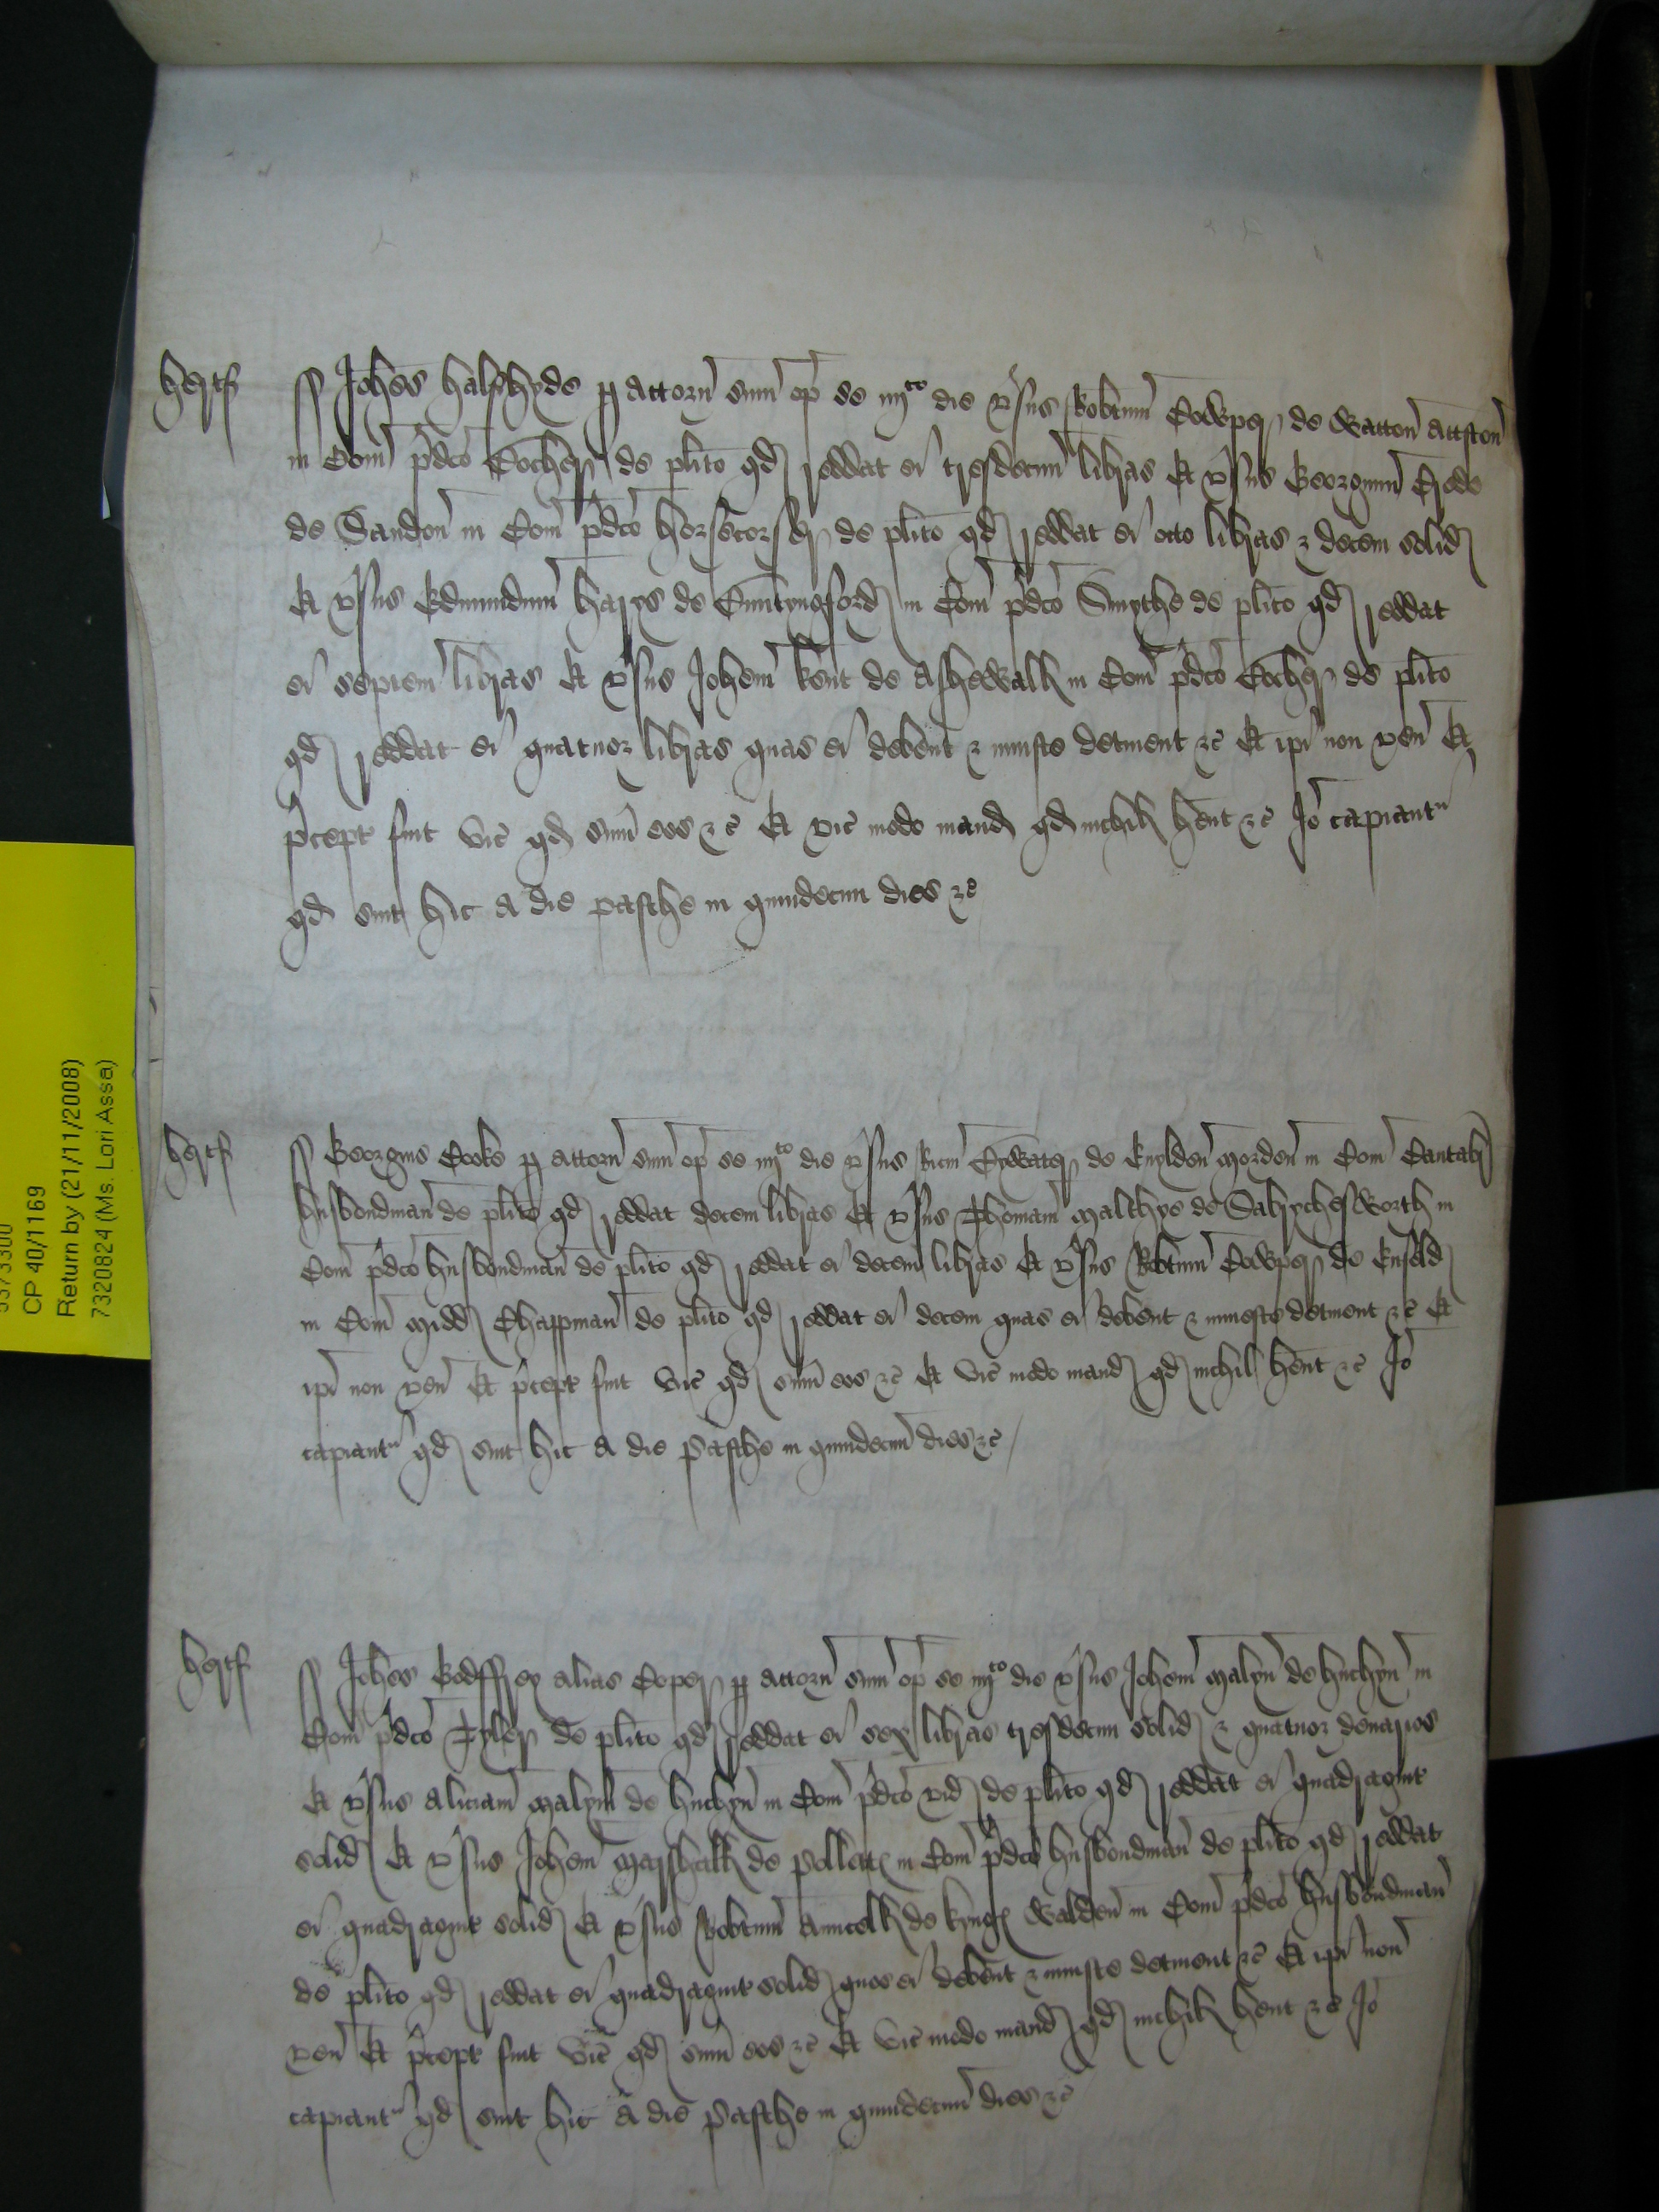 hertf
ss Johes halfhyde p attorn suu op se iiijto die vsus Robtum Cowper de Watton attston
in Com pdco Cocher de plito qd reddat ei tresdecim libras Et vsus Georgium Crede
de Sandon in Com pdco horsecorser de plito qd reddat ei octo libras & decem solid
Et vsus Edmundum harys de Buntyngford in Com pdco Smythe de plito qd reddat
ei septem libras Et vsus Johem kent de Asshewell in Com pdco Cocher de plito
qd reddat ei quatuor libras quas ei debent & iniuste detinent &c Et ipi non ven Et
pcept fuit vic qd sum eos &c Et vic modo mand qd nichil hent &c Jo capiantr
qd sint hic a die pasche in quindecim dies &c
hertf
ss Georgius Cooke p attorn suu op se iiijto die vsus Ricm de Gylden Morden in Com Cantabr
husbondman de plito qd reddat decem libras Et vsus Thomam Malthys de Sabrycheworth in
Com pdco husbondman de plito qd reddat ei decem libras Et vsus Robtum Cowper de Enfeld
in Com Midd Chapman de plito qd reddat ei decem quas ei debent & iniuste detinent &c Et
ipi non ven Et pcept fuit vic qd sum eos &c Et vic modo mand qd nichil hent &c Jo
capiantr qd sint hic a die Pasche in quindecim dies &c
hertf
ss Johes Godffrey alias Coper p attorn suu op se iiijto die vsus Johem Malyn de huchyn in
Com pdco Tyler de plito qd reddat ei sex libras tresdecim solid & quatuor denarios
Et vsus Aliciam Malyn de huchyn in Com pdco vid de plito qd reddat ei quadragint
solid Et vsus Johem Marshall de Pollett in Com pdco husbondman de plito qd reddat
ei quadragint solid Et vsus Robtum Anncell de kyngs Walden in Com pdco husbondman
de plito qd reddat ei quadragint solid quos ei debent & iniuste detinent &c Et ipi non
ven Et pcept fuit vic qd sum eos &c Et vic modo mand qd nichil hent &c Jo
capiantr qd sint hic a die Pasche in quindecim dies &c
CP 40/1169
Return by (21/11/2008)
7320824 (Ms. Lori Assa)